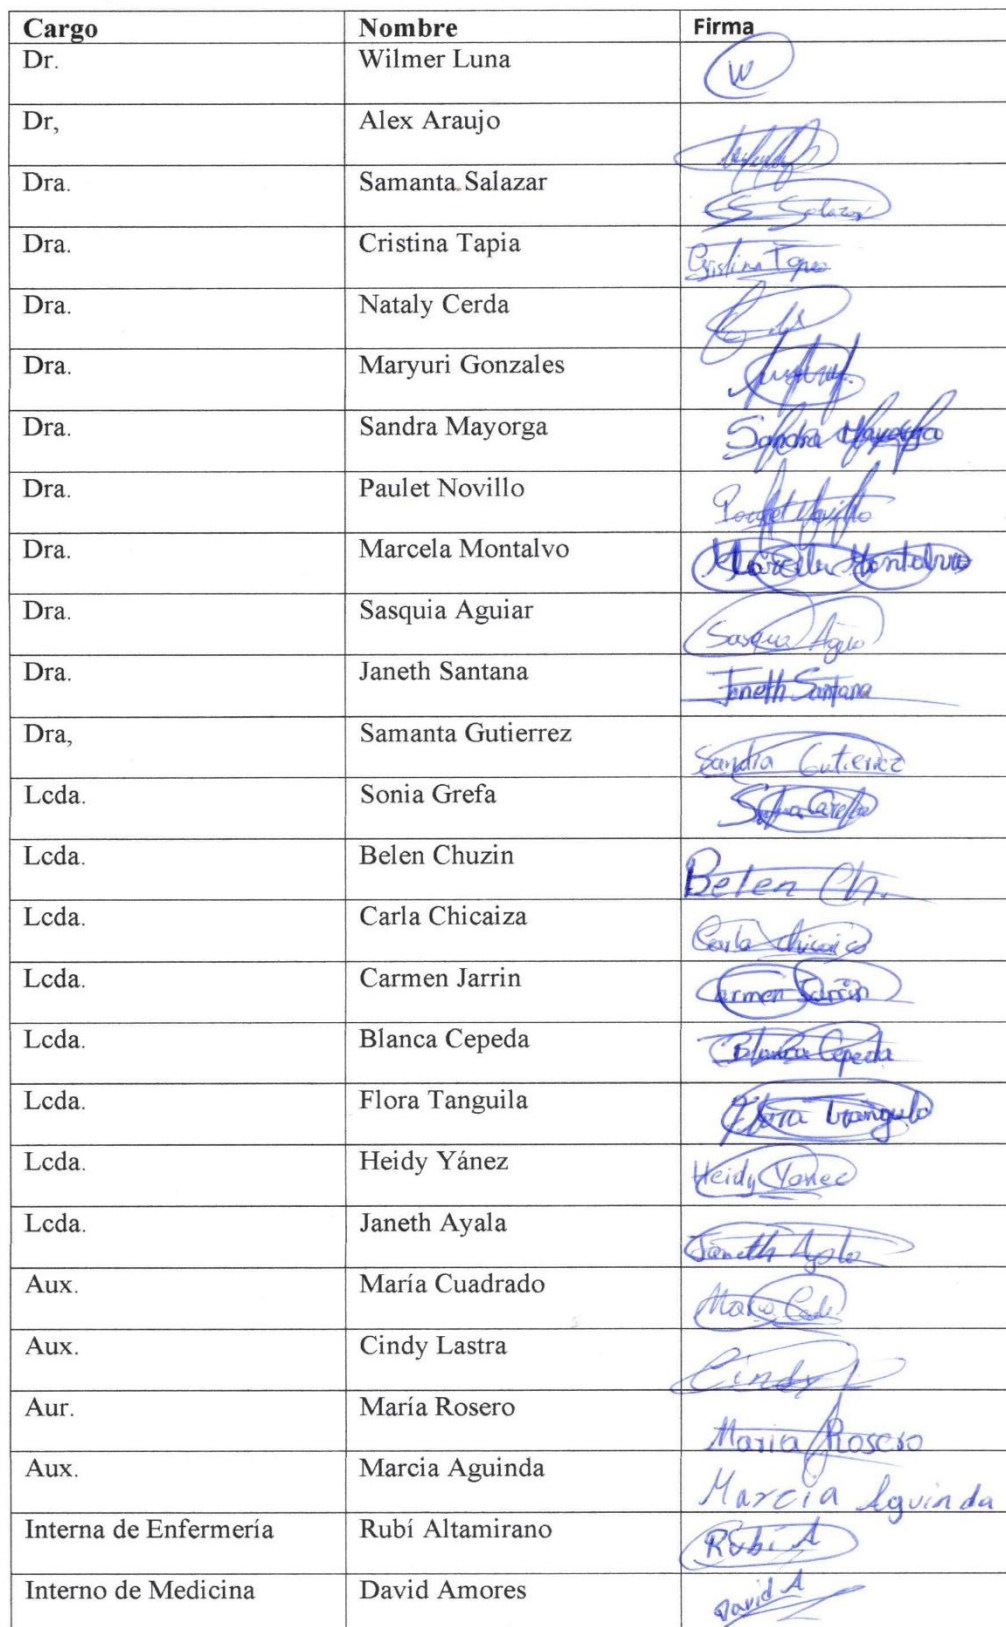 Cargo Nombre Firma
Dr. Wilmer Luna W
Dr, Alex Araujo
Dra. Samanta Salazar S Salazar
Dra. Cristina Tapia Cristina Tapia
Dra. Nataly Cerda
Dra. Maryuri Gonzales
Dra. Sandra Mayorga Sandra Mayorga
Dra. Paulet Novillo Paulet Novillo
Dra. Marcela Montalvo Marcela Montalvo
Dra. Sasquia Aguiar Sasquia
Dra. Janeth Santana Janeth Santana
Dra, Samanta Gutierrez Sandra Gutierrez
Lcda. Sonia Grefa Sonia Grefa
Lcda. Belen Chuzin Belen Ch.
Lcda. Carla Chicaiza Carla Chicaiza
Lcda. Carmen Jarrin Carmen Jarrin
Lcda. Blanca Cepeda Blanca Cepeda
Lcda. Flora Tanguila Flora
Lcda. Heidy Yánez Heidy Yanez
Lcda. Janeth Ayala Janeth Ayala
Aux. María Cuadrado Maria
Aux. Cindy Lastra Cindy
Aur. María Rosero Maria Rosero
Aux. Marcia Aguinda Marcia Aguinda
Interna de Enfermería Rubí Altamirano Rubi A
Interno de Medicina David Amores David A